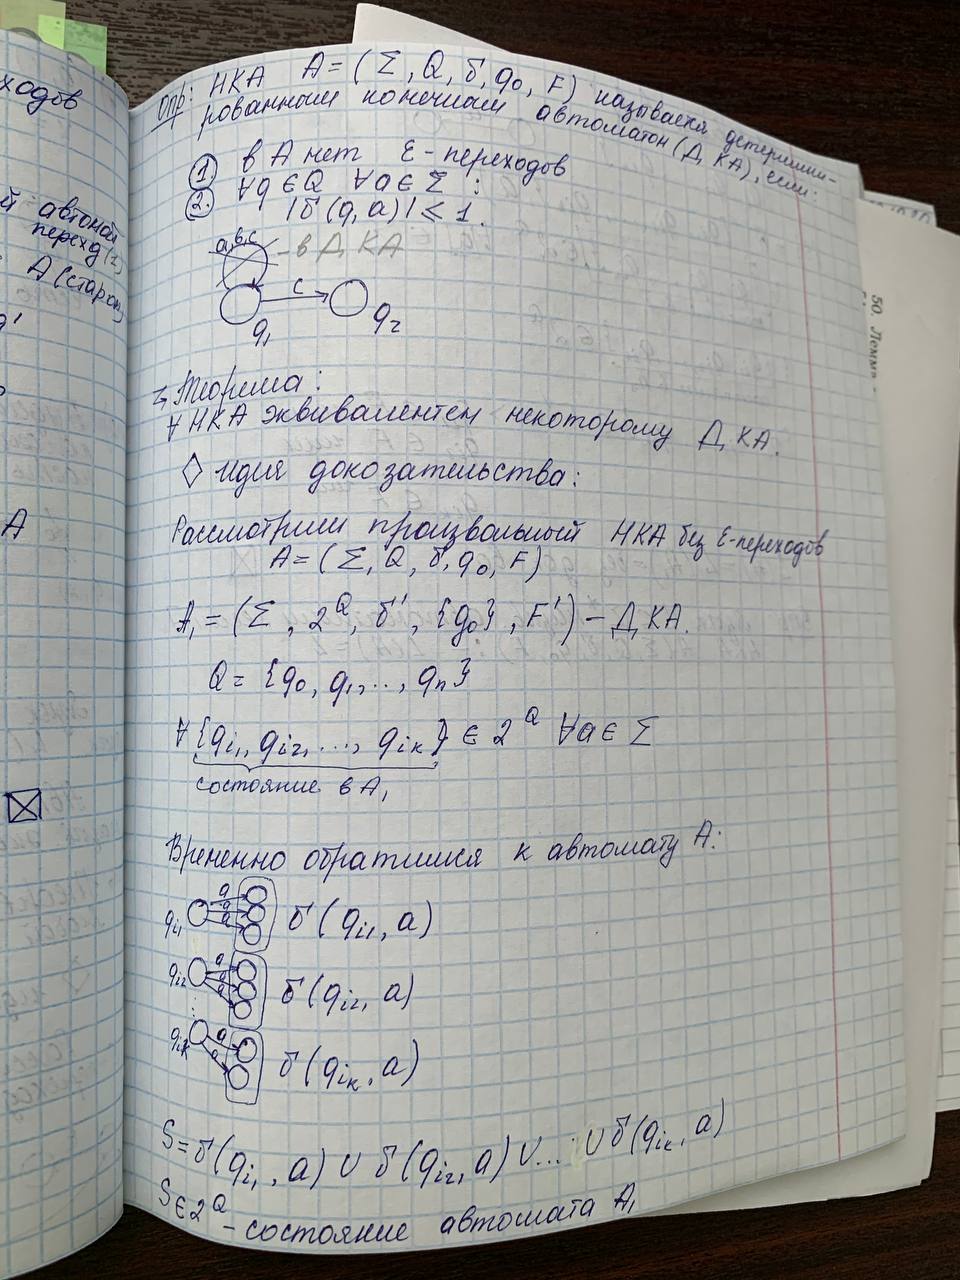 ходов
й автомат
переход (2,
А (старом,
q'
А
Опр: НКА А = (Σ, Q, б, q₀, F) называется детермини-
рованным конечным автоматом (ДКА), если:
① в А нет Ɛ-переходов
②. ∀q ∈ Q ∀a ∈ Σ :
|б(q, a)| ≤ 1.
a,b,c - в ДКА
c
q₁ q₂
Теорема:
∀ НКА эквивалентен некоторому ДКА.
◊ идия докозательства:
Рассмотрим произвольный НКА без Ɛ-переходов
А = (Σ, Q, б, q₀, F)
А₁ = (Σ, 2^Q, б', {q₀}, F') – ДКА.
Q = {q₀, q₁, ..., qₙ}
∀ {qi₁, qi₂, ..., qiₖ} ∈ 2^Q ∀a ∈ Σ
состояние в А₁
Временно обратимся к автомату А:
qi₁ a a a б(qi₁, a)
qi₂ a a a б(qi₂, a)
⋮
qiₖ a a б(qiₖ, a)
S = б(qi₁, a) ∪ б(qi₂, a) ∪ ... ∪ б(qiₖ, a)
S ∈ 2^Q – состояние автомата А₁
50. Лемма